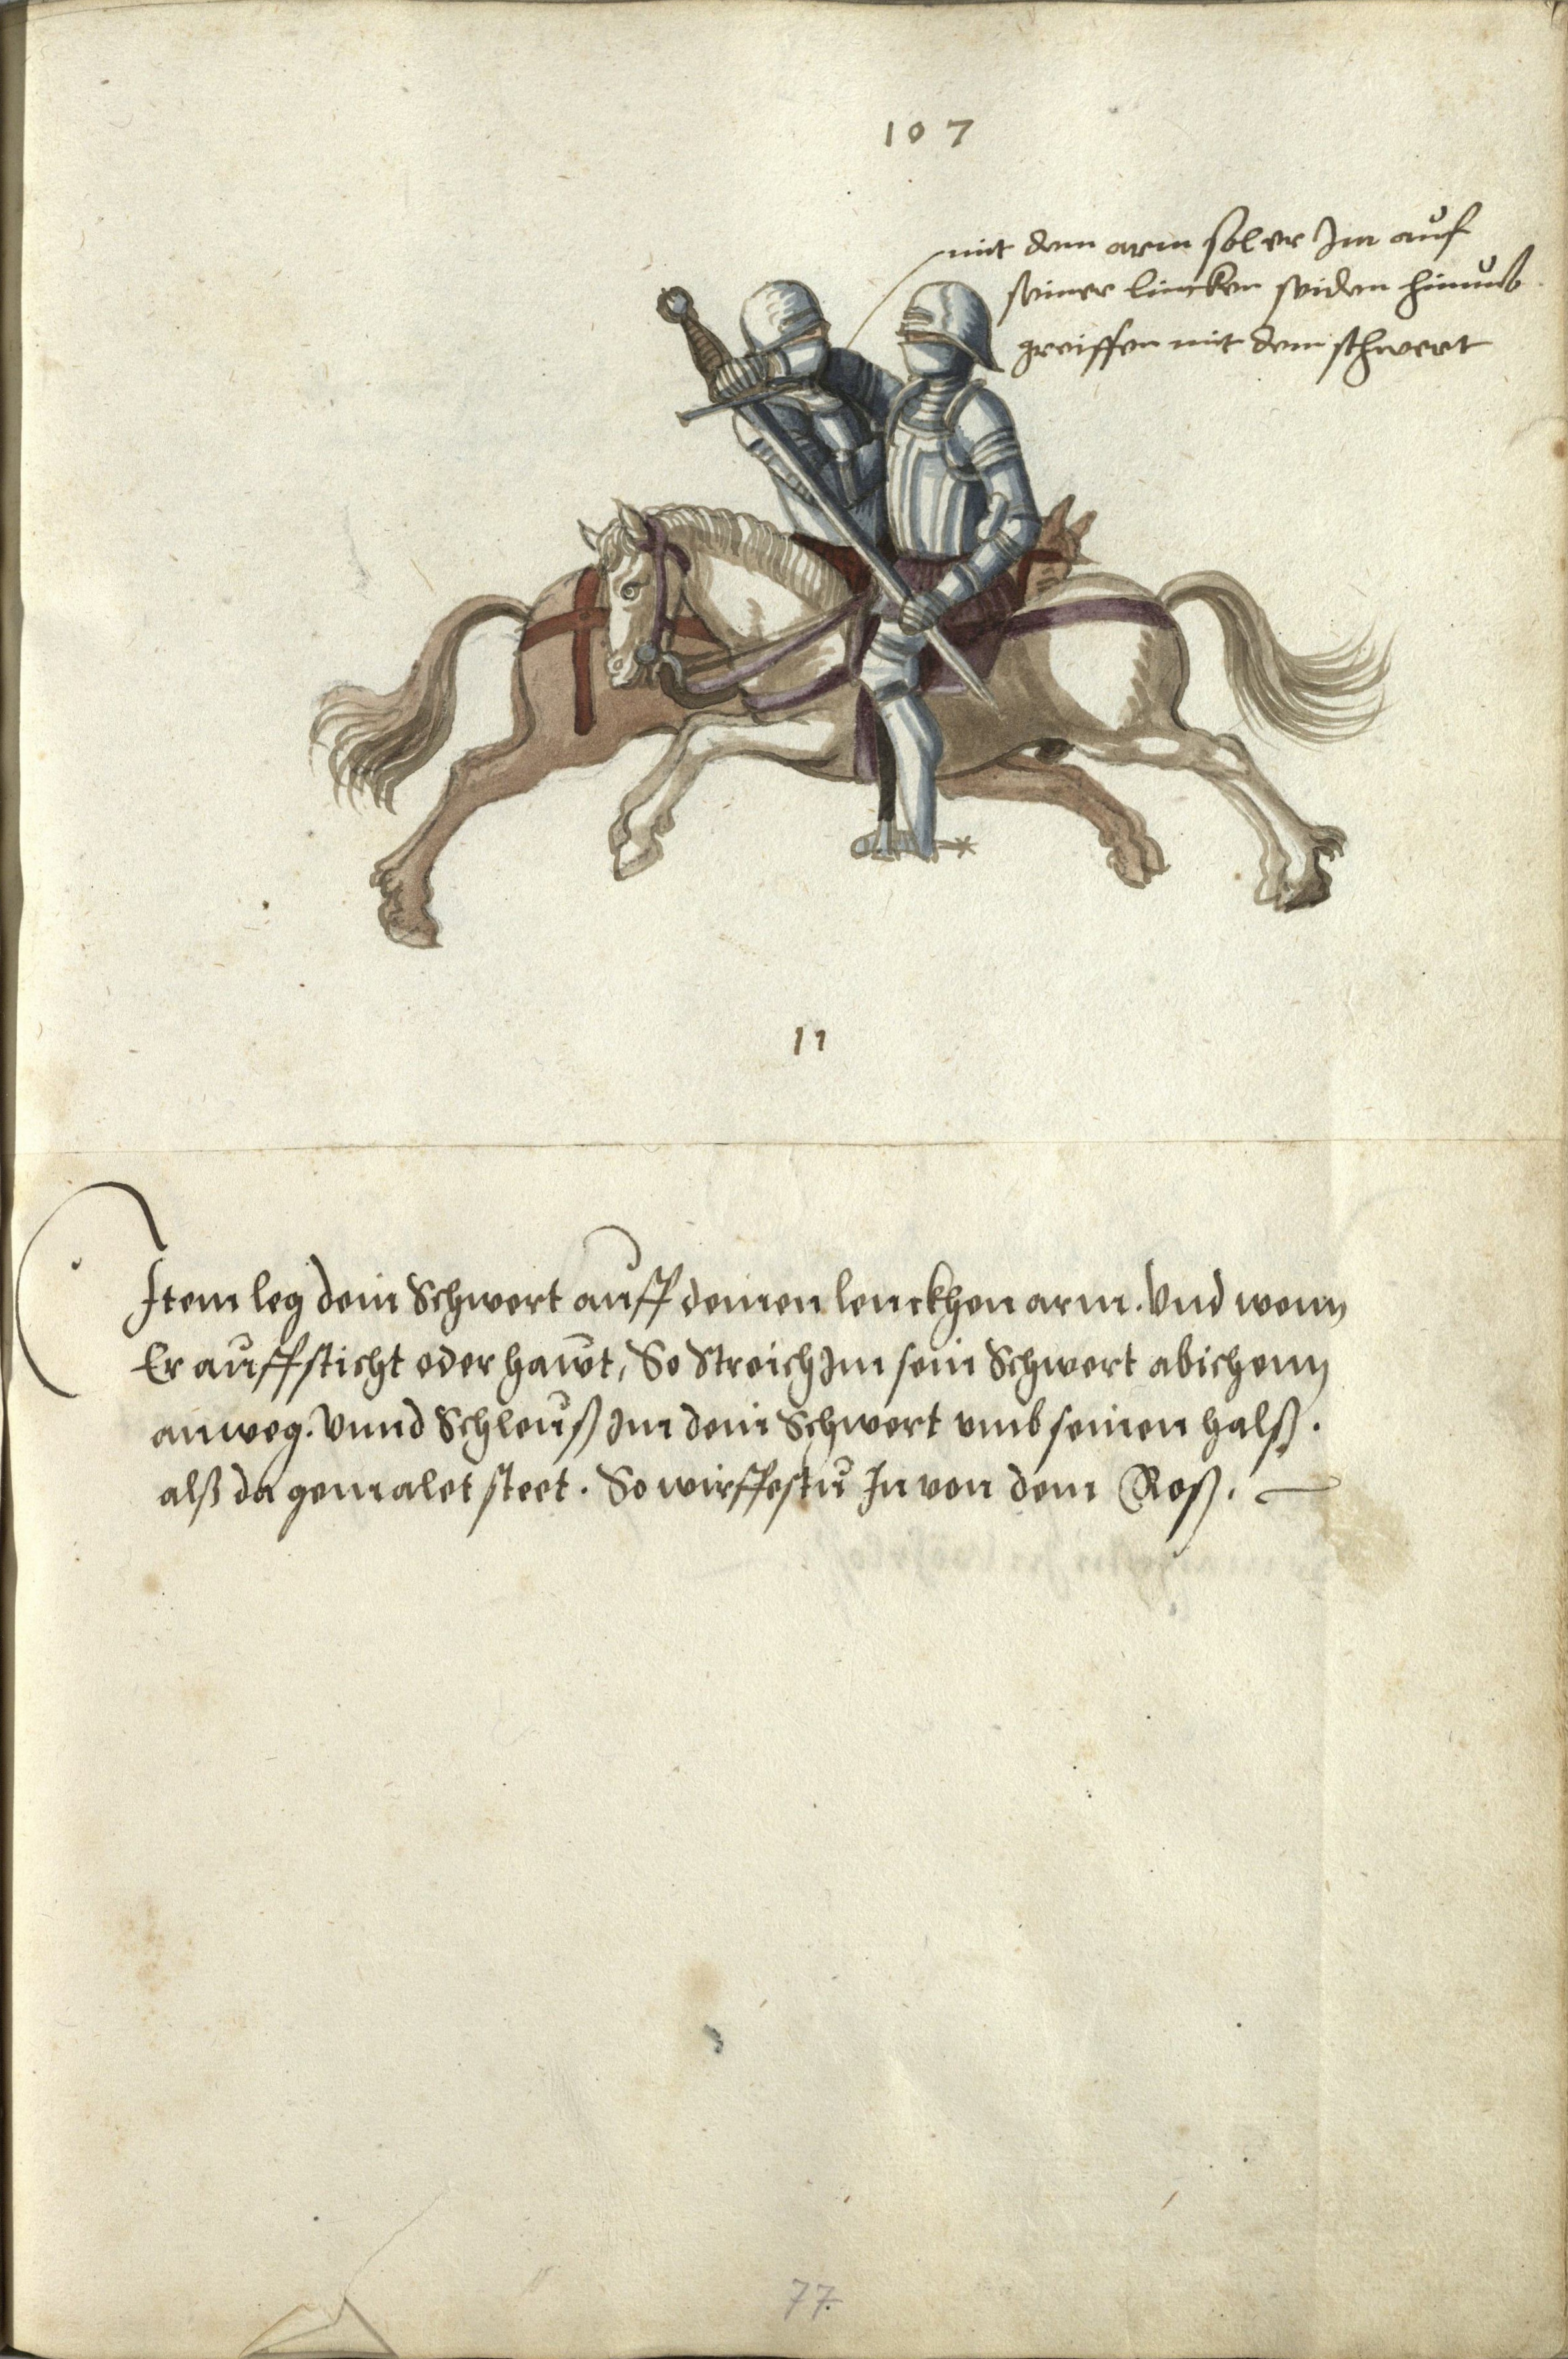 107
mit dem arm sol er Im auf
seiner lincken seiden hinumb
greiffen mit dem schwert
11
Item leg dein Schwert auff deinen lenckhen arm. Vnd wenn
Er auffsticht oder hawt, So Streich Im sein Schwert abichenn
anweg. Vnnd Schleuß Im dein Schwert vmb seinen halß.
alß da gemalet steet. So wirffestu In von dem Roß.
77